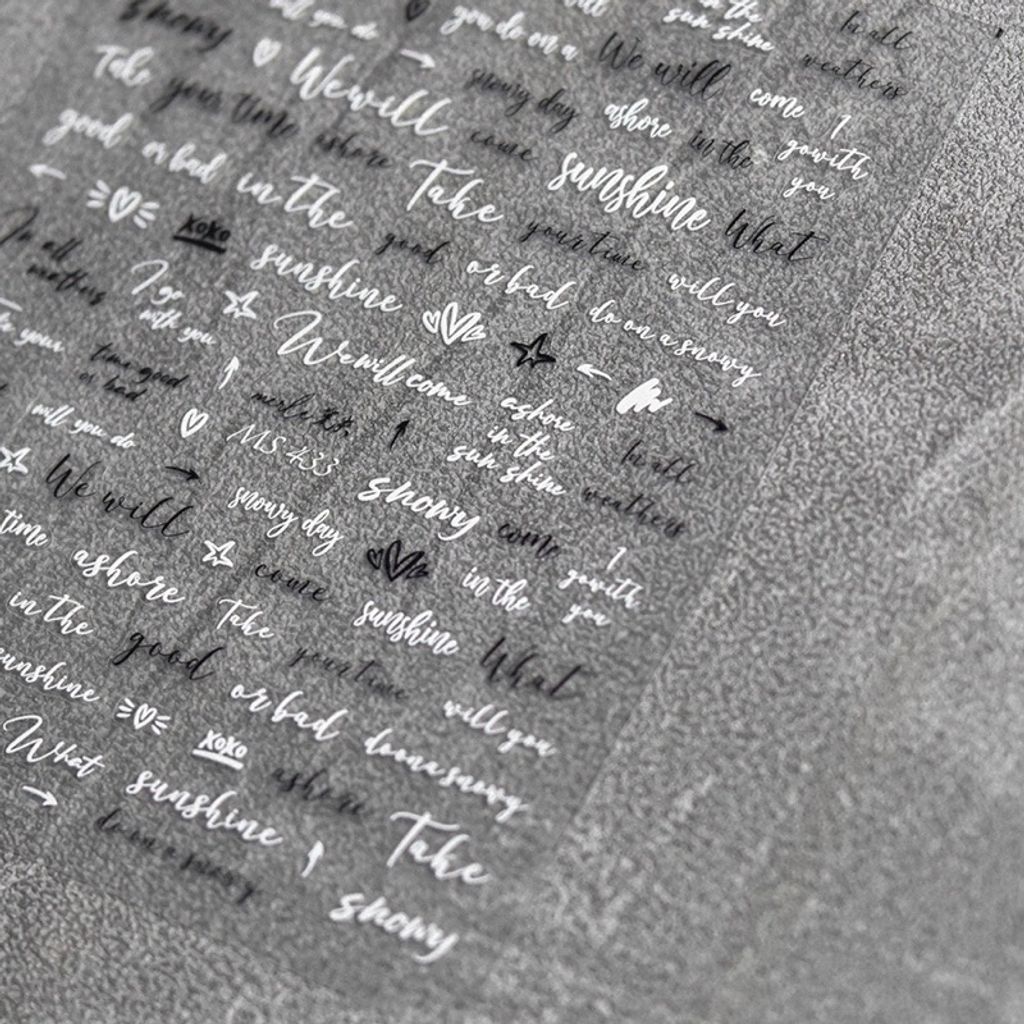 snowy will you do you do on a will in the sun shine In all weathers
Take your time We will snowy day We will come I go with you
good or bad ashore come ashore in the
in the Take sunshine What
xoxo good your time will you
In all weathers I go with you sunshine or bad do on a snowy
your time good or bad We will come ashore in the sun shine In all weathers
will you do MS 433 snowy come I go with you
We will snowy day in the
time ashore come sunshine What
in the good Take your time will you
sunshine or bad do on a snowy
What xoxo ashore
sunshine Take
do on a snowy snowy